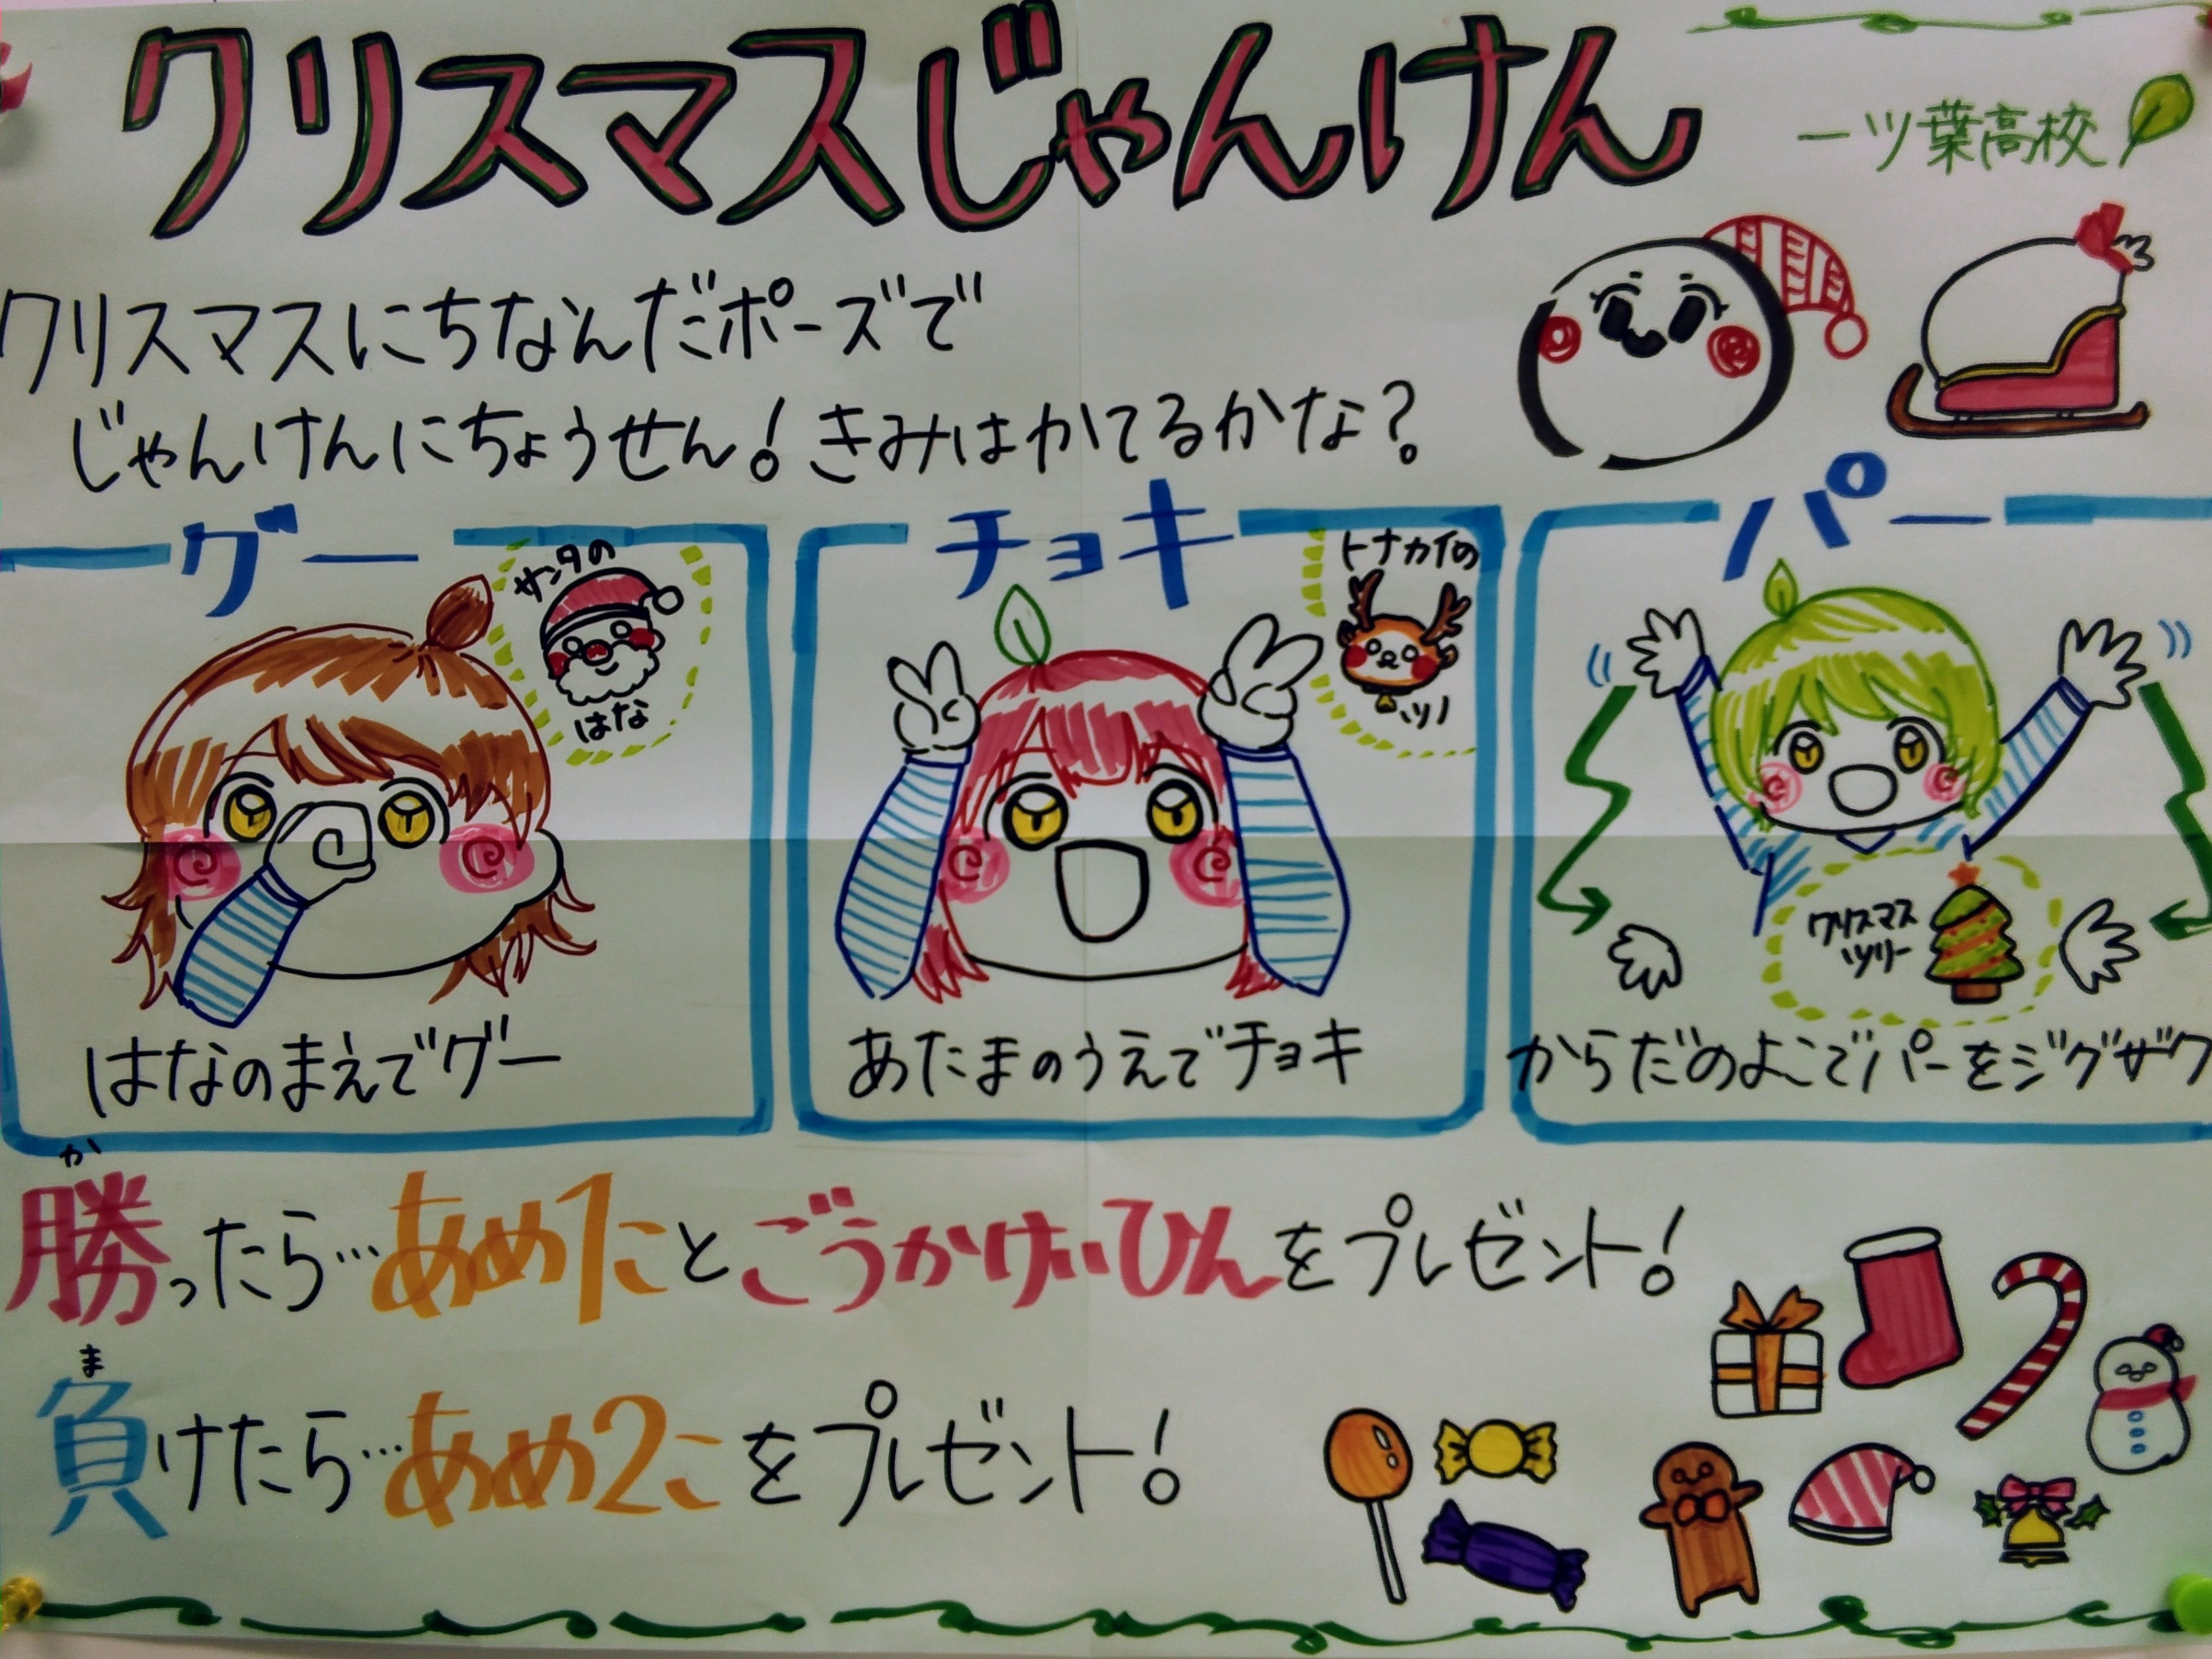 クリスマスじゃんけん
一ツ葉高校
クリスマスにちなんだポーズで
じゃんけんにちょうせん！きみはかてるかな？
グー
サンタの
はな
はなのまえでグー
チョキ
トナカイの
ツノ
あたまのうえでチョキ
パー
クリスマス
ツリー
からだのよこでパーをジグザク
か
勝ったら…あめ1ことごうかけいひんをプレゼント！
ま
負けたら…あめ2こをプレゼント！